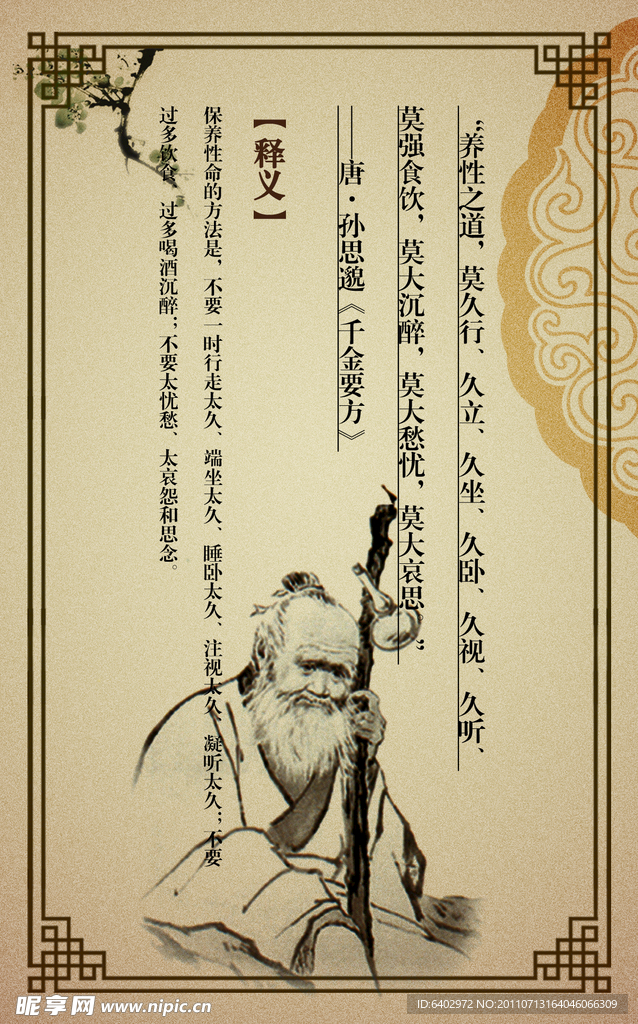 “养性之道，莫久行、久立、久坐、久卧、久视、久听、
莫强食饮，莫大沉醉，莫大愁忧，莫大哀思。”
——唐·孙思邈《千金要方》
【释义】
保养性命的方法是，不要一时行走太久、端坐太久、睡卧太久、注视太久、凝听太久；不要
过多饮食、过多喝酒沉醉；不要太忧愁、太哀怨和思念。
昵享网 www.nipic.cn
ID:6402972 NO:20110713164046066309